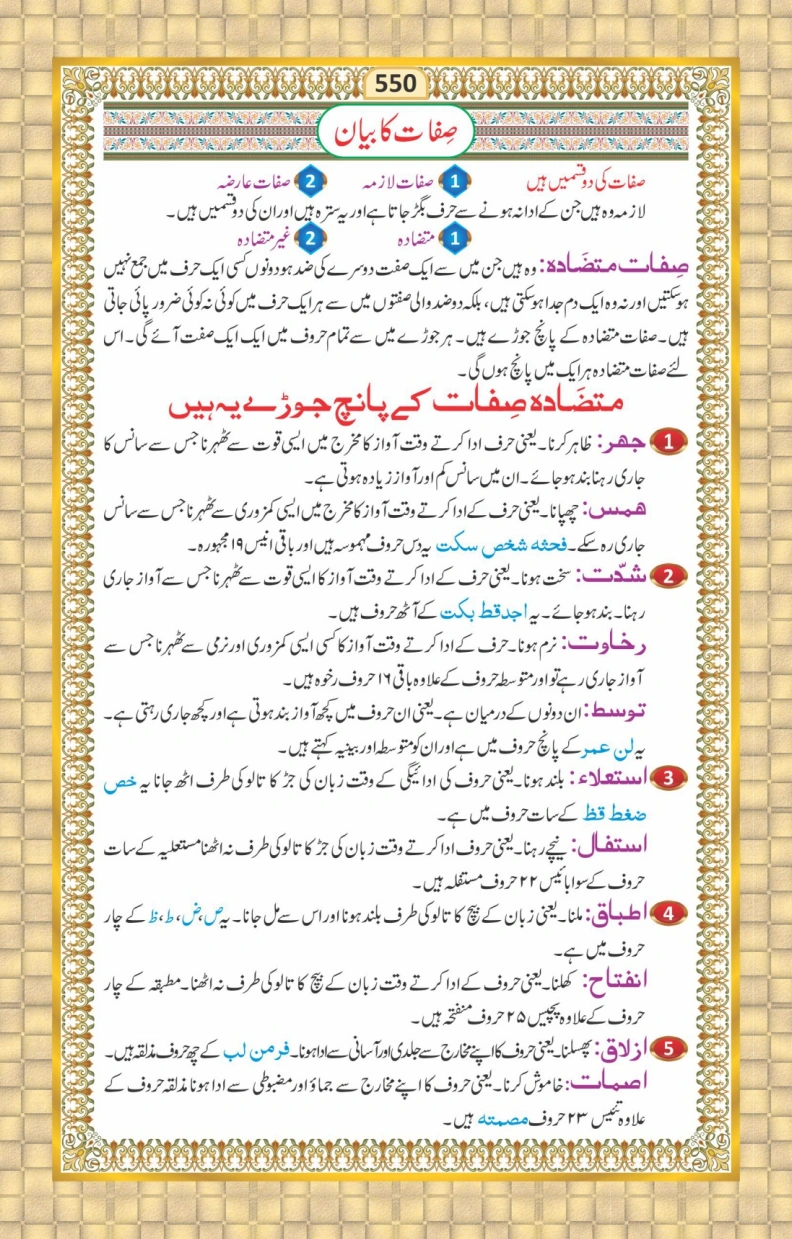 550
صِفات کا بیان
صفات کی دو قسمیں ہیں 1 صفات لازمہ 2 صفات عارضہ
لازمہ وہ ہیں جن کے ادا نہ ہونے سے حرف بگڑ جاتا ہے اور یہ سترہ ہیں اور ان کی دو قسمیں ہیں۔
1 متضادہ 2 غیر متضادہ
صِفات متضَادہ: وہ ہیں جن میں سے ایک صفت دوسرے کی ضد ہو دونوں کسی ایک حرف میں جمع نہیں
ہو سکتیں اور نہ وہ ایک دم جدا ہو سکتی ہیں، بلکہ دو ضد والی صفتوں میں سے ہر ایک حرف میں کوئی نہ کوئی ضرور پائی جاتی
ہیں۔ صفات متضادہ کے پانچ جوڑے ہیں۔ ہر جوڑے میں سے تمام حروف میں ایک ایک صفت آئے گی۔ اس
لئے صفات متضادہ ہر ایک میں پانچ ہوں گی۔
متضَادہ صِفات کے پانچ جوڑے یہ ہیں
1 جھر: ظاہر کرنا۔ یعنی حرف ادا کرتے وقت آواز کا مخرج میں ایسی قوت سے ٹھہرنا جس سے سانس کا
جاری رہنا بند ہو جائے۔ ان میں سانس کم اور آواز زیادہ ہوتی ہے۔
ھمس: چھپانا۔ یعنی حرف کے ادا کرتے وقت آواز کا مخرج میں ایسی کمزوری سے ٹھہرنا جس سے سانس
جاری رہ سکے۔ فحثہ شخص سکت یہ دس حروف مہموسہ ہیں اور باقی انیس ۱۹ مجہورہ۔
2 شدّت: سخت ہونا۔ یعنی حرف کے ادا کرتے وقت آواز کا ایسی قوت سے ٹھہرنا جس سے آواز جاری
رہنا۔ بند ہو جائے۔ یہ اجدقط بکت کے آٹھ حروف ہیں۔
رخاوت: نرم ہونا۔ حرف کے ادا کرتے وقت آواز کا کسی ایسی کمزوری اور نرمی سے ٹھہرنا جس سے
آواز جاری رہے تو اور متوسطہ حروف کے علاوہ باقی ۱۶ حروف رخوہ ہیں۔
توسط: ان دونوں کے درمیان ہے۔ یعنی ان حروف میں کچھ آواز بند ہوتی ہے اور کچھ جاری رہتی ہے۔
یہ لن عمر کے پانچ حروف میں ہے اور ان کو متوسطہ اور بینیہ کہتے ہیں۔
3 استعلاء: بلند ہونا۔ یعنی حروف کی ادائیگی کے وقت زبان کی جڑ کا تالو کی طرف اٹھ جانا یہ خص
ضغط قظ کے سات حروف میں ہے۔
استفال: نیچے رہنا۔ یعنی حروف ادا کرتے وقت زبان کی جڑ کا تالو کی طرف نہ اٹھنا مستعلیہ کے سات
حروف کے سوا بائیس ۲۲ حروف مستفلہ ہیں۔
4 اطباق: ملنا۔ یعنی زبان کے بیچ کا تالو کی طرف بلند ہونا اور اس سے مل جانا۔ یہ ص، ض، ط، ظ کے چار
حروف میں ہے۔
انفتاح: کھلنا۔ یعنی حروف کے ادا کرتے وقت زبان کے بیچ کا تالو کی طرف نہ اٹھنا۔ مطبقہ کے چار
حروف کے علاوہ پچیس ۲۵ حروف منفتحہ ہیں۔
5 ازلاق: پھسلنا۔ یعنی حروف کا اپنے مخارج سے جلدی اور آسانی سے ادا ہونا۔ فرمن لب کے چھ حروف مذلقہ ہیں۔
اصمات: خاموش کرنا۔ یعنی حروف کا اپنے مخارج سے جماؤ اور مضبوطی سے ادا ہونا مذلقہ حروف کے
علاوہ تئیس ۲۳ حروف مصمتہ ہیں۔